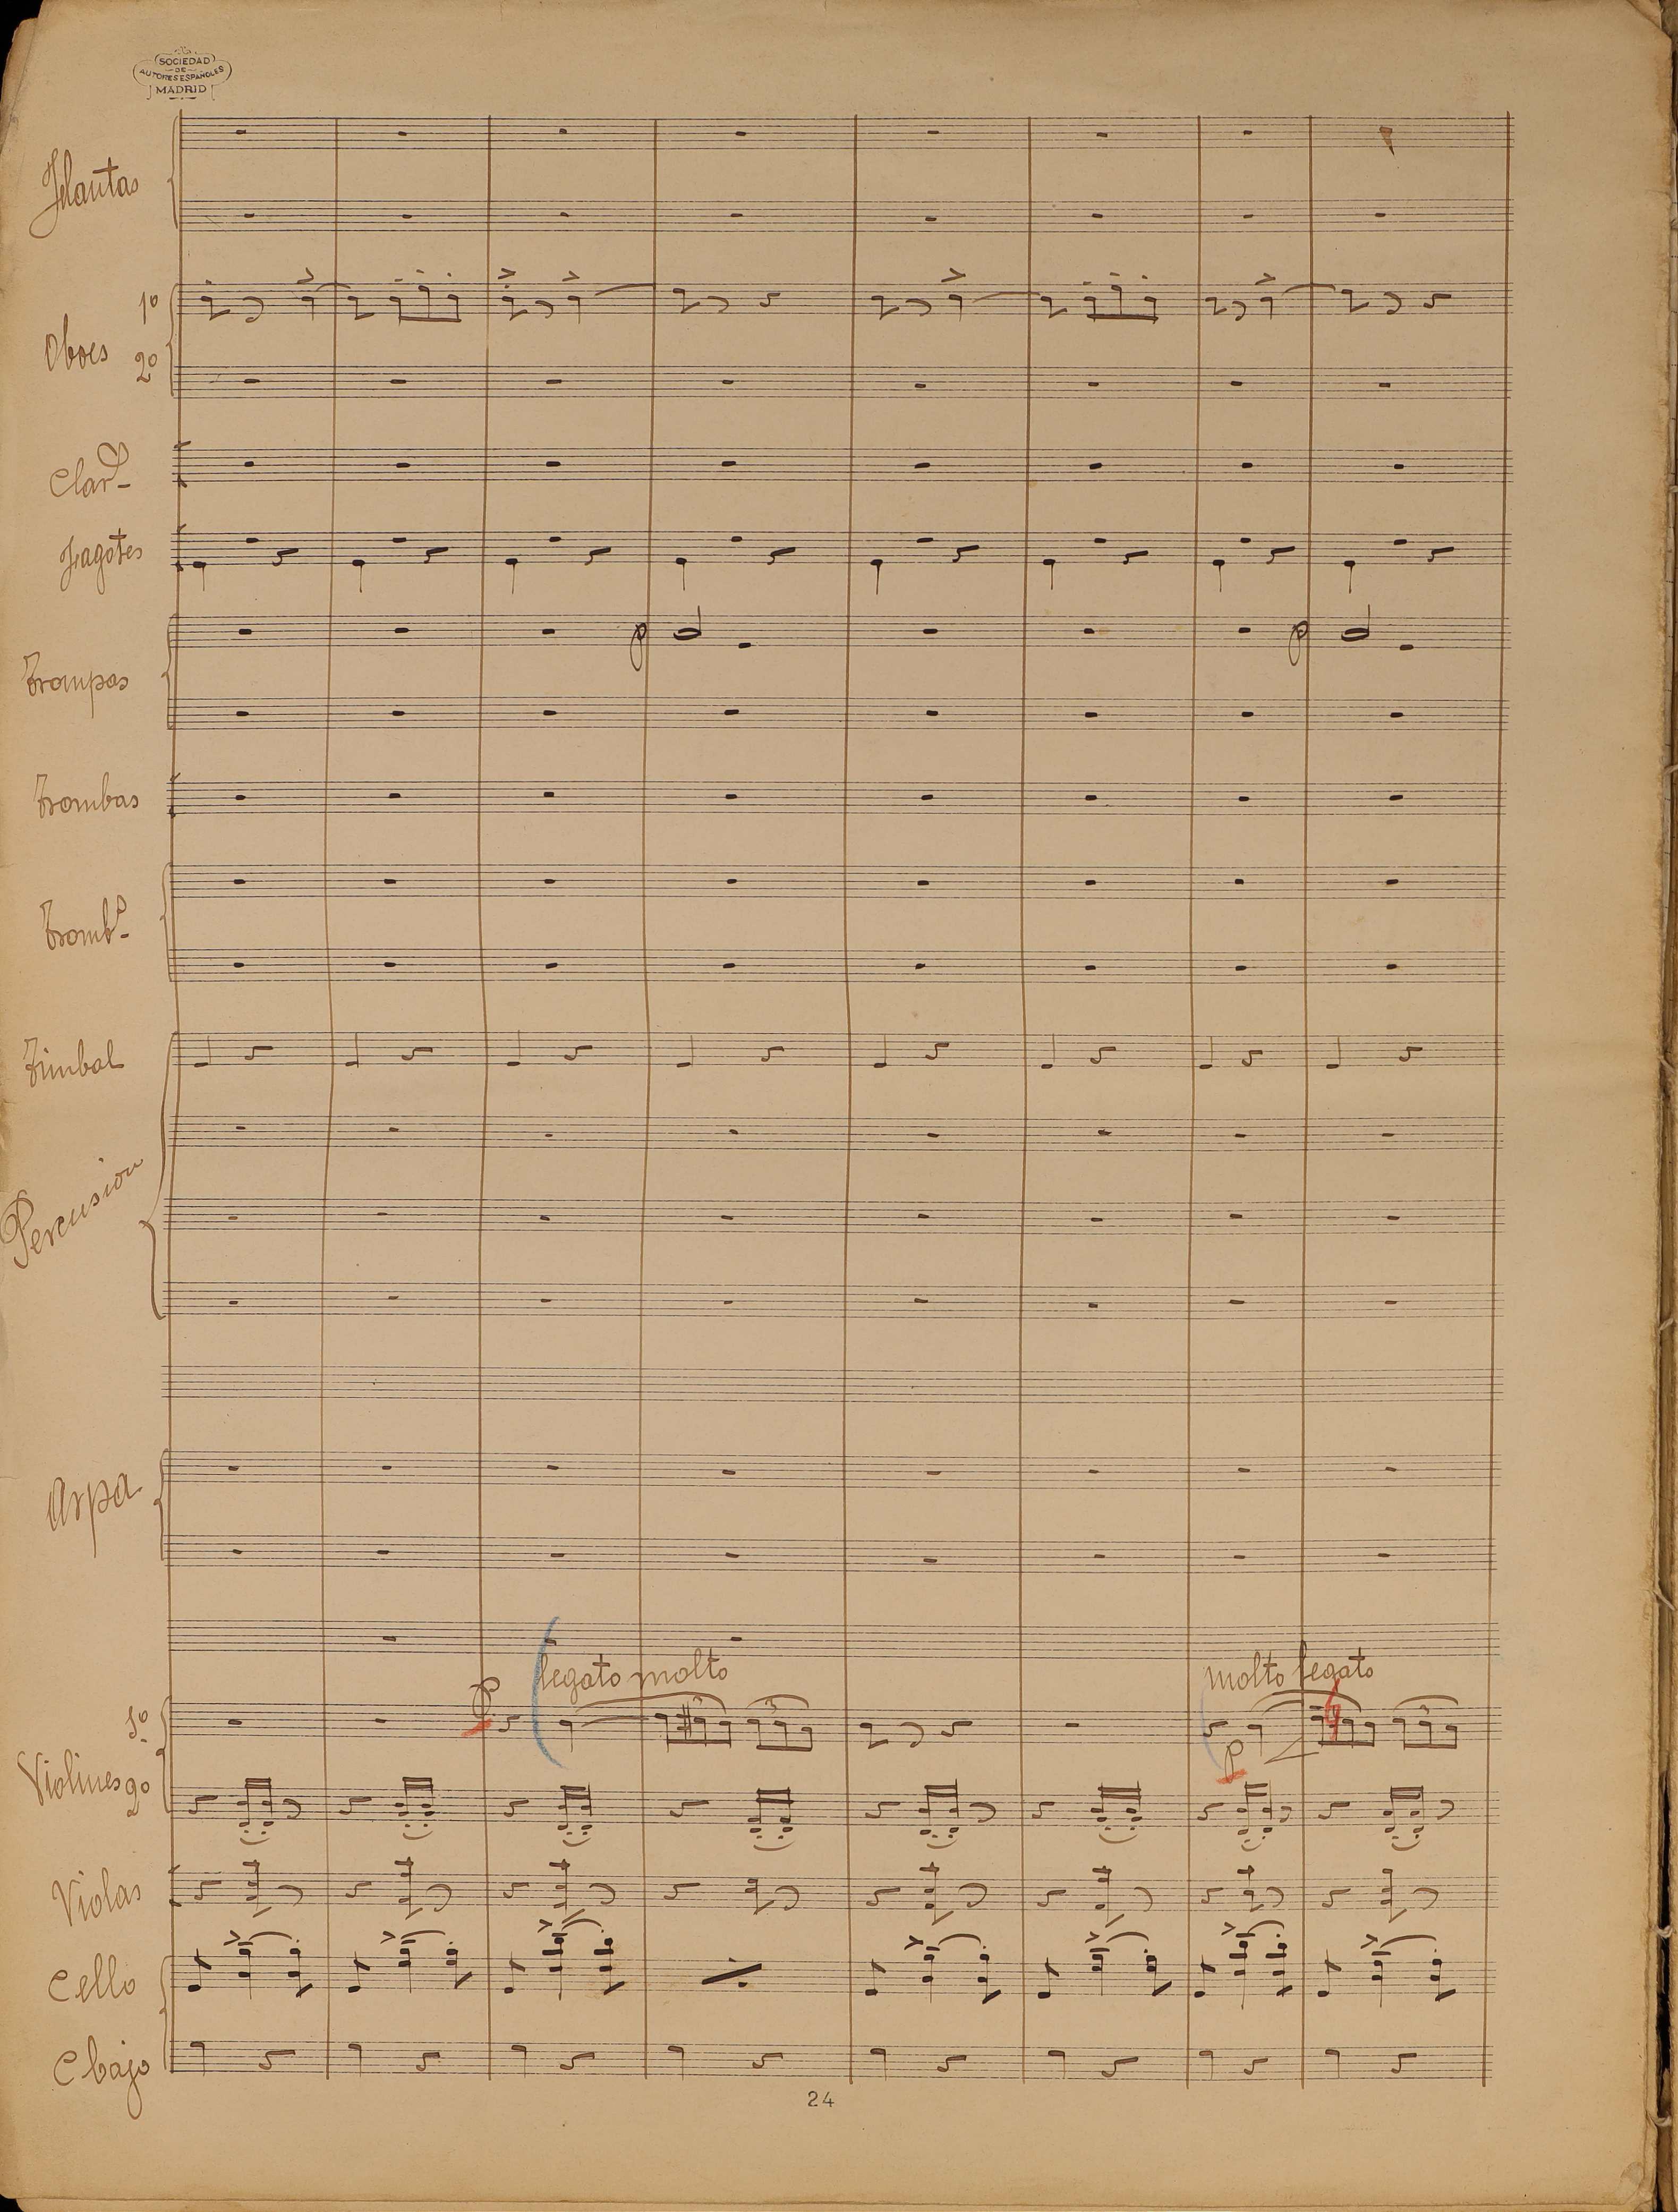 SOCIEDAD
DE
AUTORES ESPAÑOLES
MADRID
Flautas
1º
Oboes 2º
Clar.s
Fagotes
p
p
Trompas
Trombas
Tromb.s
Timbal
Percusion
Arpa
legato molto
molto legato
p
1º
3
3
3
Violines 2º
p
Violas
Cello
C bajo
24